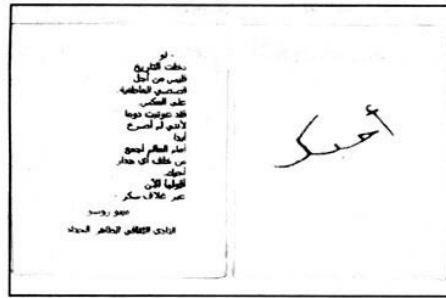 - لو
دخلت التاريخ
فليس من أجل
قصصي العاطفية
على العكس
فقد عوتبت دوما
لأنني لم أصرخ
أبدا
أمام العالم أجمع
من خلف أي جدار
أحبك
أقولها الآن
عبر غلاف سكر -
ميمو روسو
النادي الثقافي الطاهر الحداد